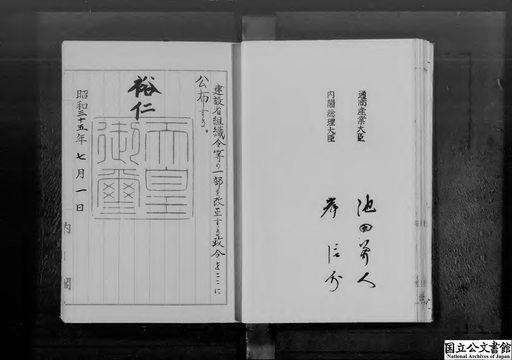 通商産業大臣 池田勇人
内閣総理大臣 岸信介
建設省組織令等の一部を改正する政令をここに
公布する。
裕仁
天皇
御璽
昭和三十五年七月一日
内閣
国立公文書館
National Archives of Japan